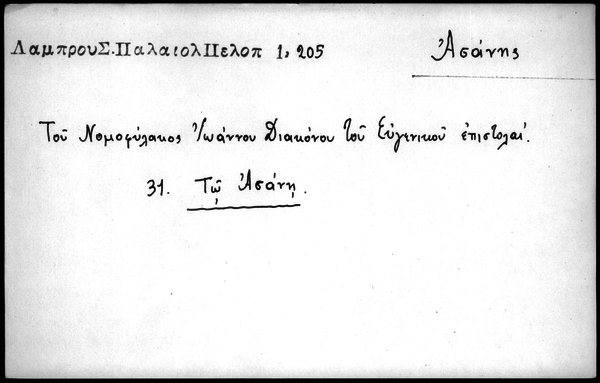 ΛαμπρουΣ.ΠαλαιολΠελοπ 1, 205
Ἀσάνης
Τοῦ Νομοφύλακος Ἰωάννου Διακόνου τοῦ Εὐγενικοῦ ἐπιστολαί.
31. Τῷ Ἀσάνῃ.